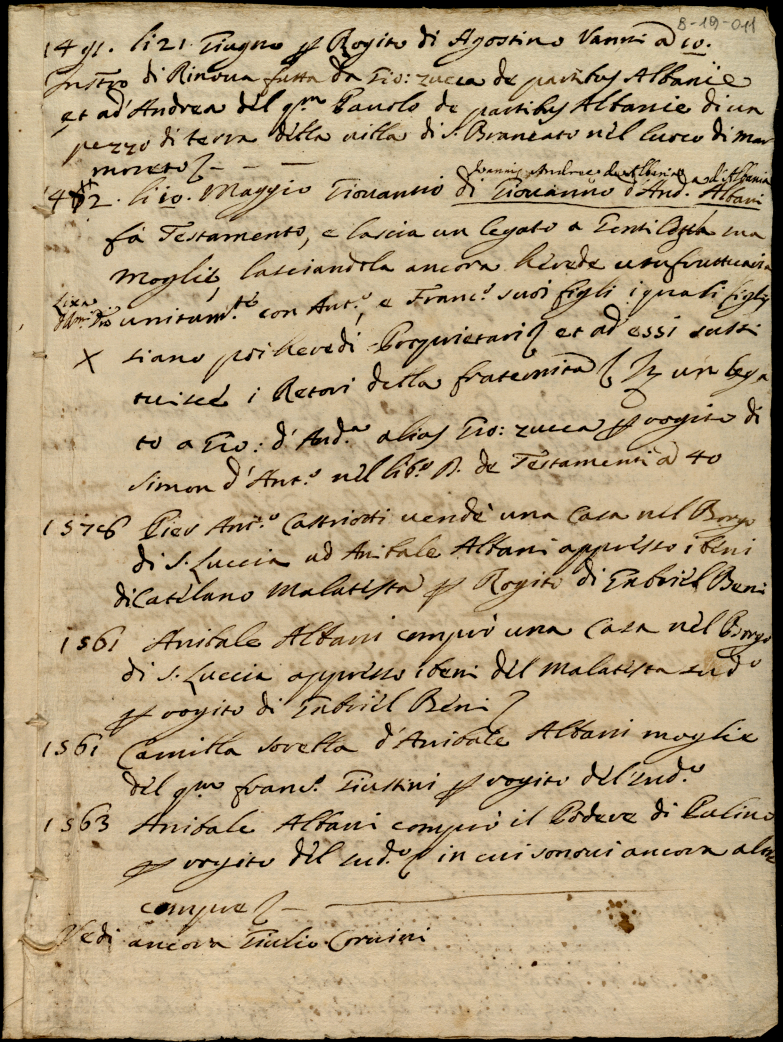 8-19-011
1491. li 21 Giugno p Rogito di Agostino Vanni a 10.
di Rinova fatta da Gio: zucca de partibus Albanie
et ad' Andrea del qm Pauolo de partibus Albanie di un
pezzo di terra della villa di S. Brancato nel luoco di mar
moreto
Joannis Andree de Albania d'Albania
li 10. Maggio Giouannio di Giouanno d'And.a Albani
fà Testamento, e lascia un legato a Gentil sua
moglie, lasciandola ancora herede usufruttuaria
unitam.te con Ant.o, e Franc.o suoi figli i quali figli
X siano poi heredi Proprietarij et ad essi susti
tuisce i Retori della fraternità un lega
to a Gio: d'And.a alias Gio: zucca p rogito di
Simon d'Ant.o nel lib.o B. de Testamenti a 40
Pier Ant.o Castriotti vende una Casa nel Borgo
di S. Luccia ad Anibale Albani appresso i beni
di Catelano Malatesta p Rogito di Gabriel Beni
1561 Anibale Albani comprò una Casa nel Borgo
di S. Luccia appresso i beni del Malatesta sud.o
p rogito di Gabriel Beni
1561 Camilla sorella d'Anibale Albani moglie
del qm Franc.o Giustini p rogito del sud.o
1563 Anibale Albani comprò il Podere di Pulino
p rogito del sud.o in cui sonoui ancora altre
compre
Vedi ancora Giulio Coruini